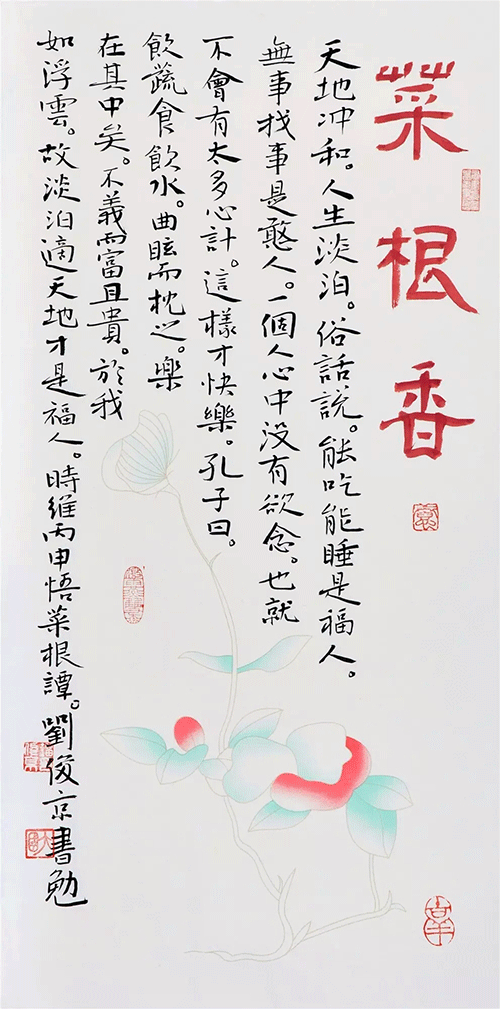 菜根香
天地冲和。人生淡泊。俗話説。能吃能睡是福人。
無事找事是憨人。一個人心中没有欲念。也就
不會有太多心計。這樣才快樂。孔子曰。
飲蔬食飲水。曲眩而枕之。樂
在其中矣。不義而富且貴。於我
如浮雲。故淡泊適天地才是福人。時維丙申悟菜根譚。劉俊京書勉